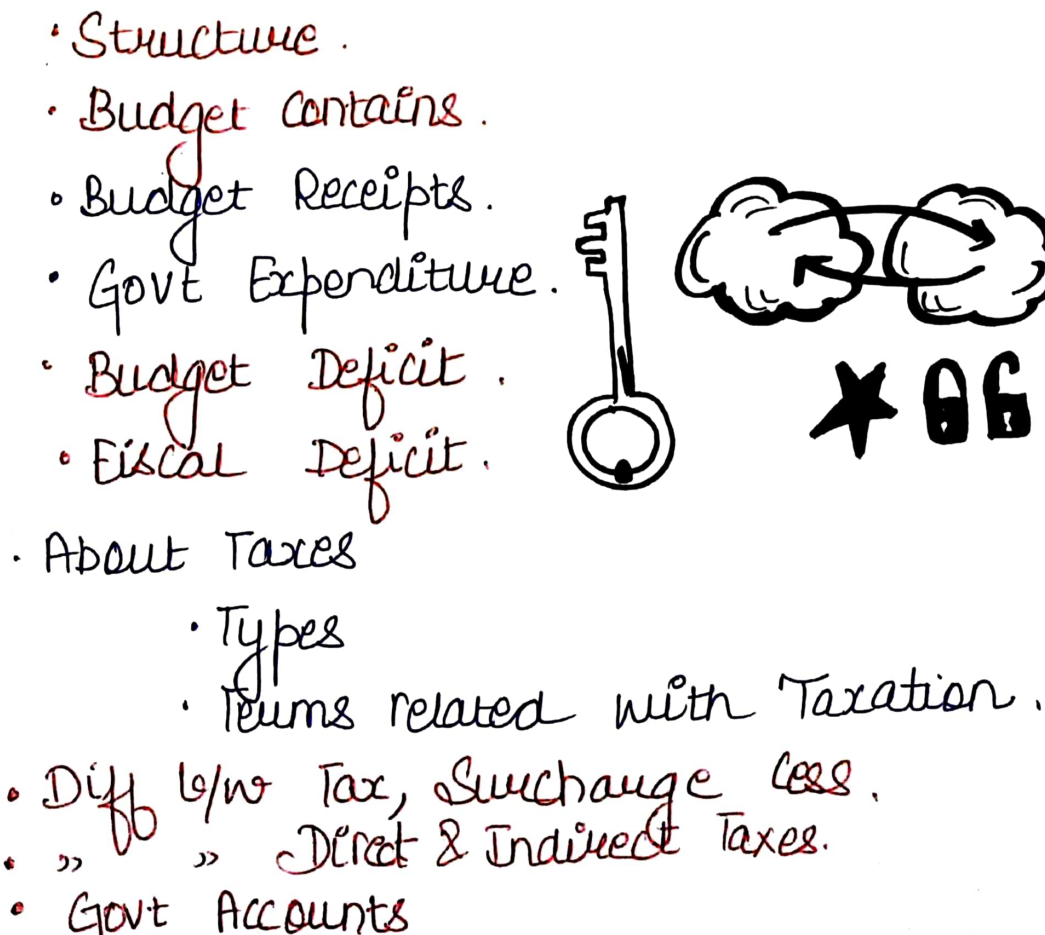 • Structure.
• Budget Contains.
• Budget Receipts.
• Govt Expenditure.
• Budget Deficit.
• Fiscal Deficit.
• About Taxes
• Types
• Terms related with Taxation.
• Diff b/w Tax, Surcharge Cess.
• " " Direct & Indirect Taxes.
• Govt Accounts